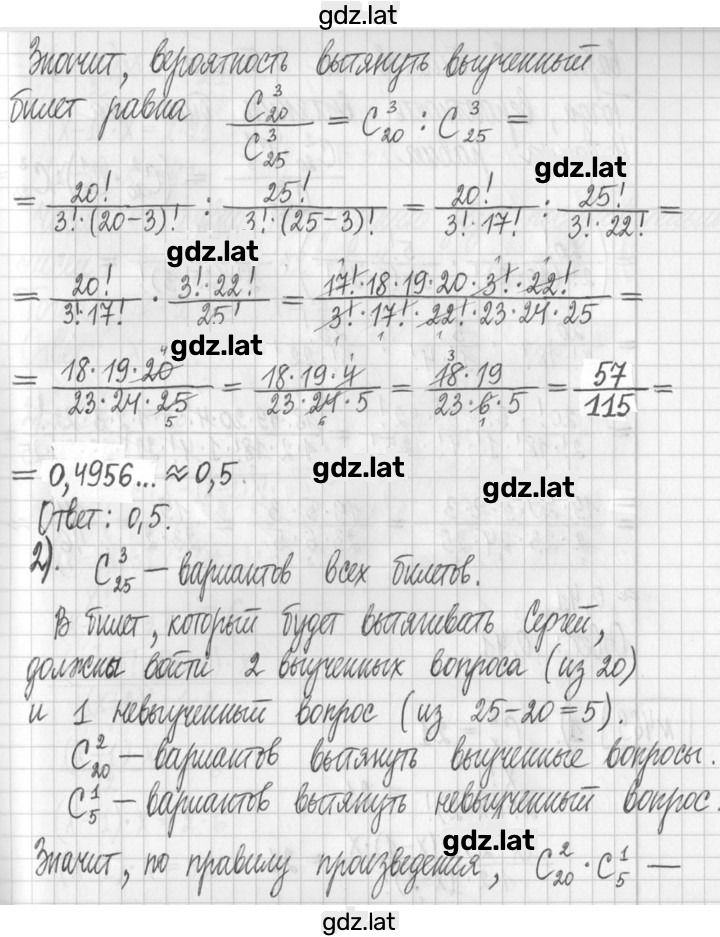 gdz.lat
Значит, вероятность вытянуть выученный
билет равна C³₂₀/C³₂₅ = C³₂₀ : C³₂₅ =
gdz.lat
= 20!/(3!·(20-3)!) : 25!/(3!·(25-3)!) = 20!/(3!·17!) : 25!/(3!·22!) =
gdz.lat
= 20!/(3!·17!) · (3!·22!)/25! = (17!·18·19·20·3!·22!)/(3!·17!·22!·23·24·25) =
gdz.lat
= (18·19·20)/(23·24·25) = (18·19·4)/(23·24·5) = (18·19)/(23·6·5) = 57/115 =
= 0,4956... ≈ 0,5
gdz.lat
gdz.lat
Ответ: 0,5.
2). C³₂₅ — вариантов всех билетов.
В билет, который будет вытягивать Сергей,
должны войти 2 выученных вопроса (из 20)
и 1 невыученный вопрос (из 25-20=5).
C²₂₀ — вариантов вытянуть выученные вопросы.
C¹₅ — вариантов вытянуть невыученный вопрос.
gdz.lat
Значит, по правилу произведения, C²₂₀ · C¹₅ —
gdz.lat